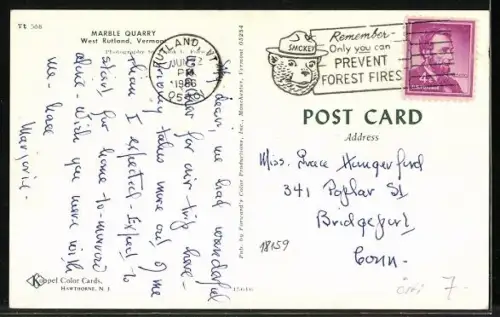 VT 566
MARBLE QUARRY
West Rutland, Vermont
My dear, we had wonderful
weather for our trip here -
driving takes more out of me
than I expected. Expect to
start for home to-morrow
a.m. Wish you were with
me - love
Marjorie -
Kappel Color Cards,
HAWTHORNE, N. J.
Pub. by Forward's Color Productions, Inc., Manchester, Vermont 05254
RUTLAND, VT
JUN
PM
1966
SMOKEY
Remember-
Only you can
PREVENT
FOREST FIRES
4
POST CARD
Address
Miss. Grace Hungerford
341 Poplar St
Bridgeport
Conn.
18159
7.